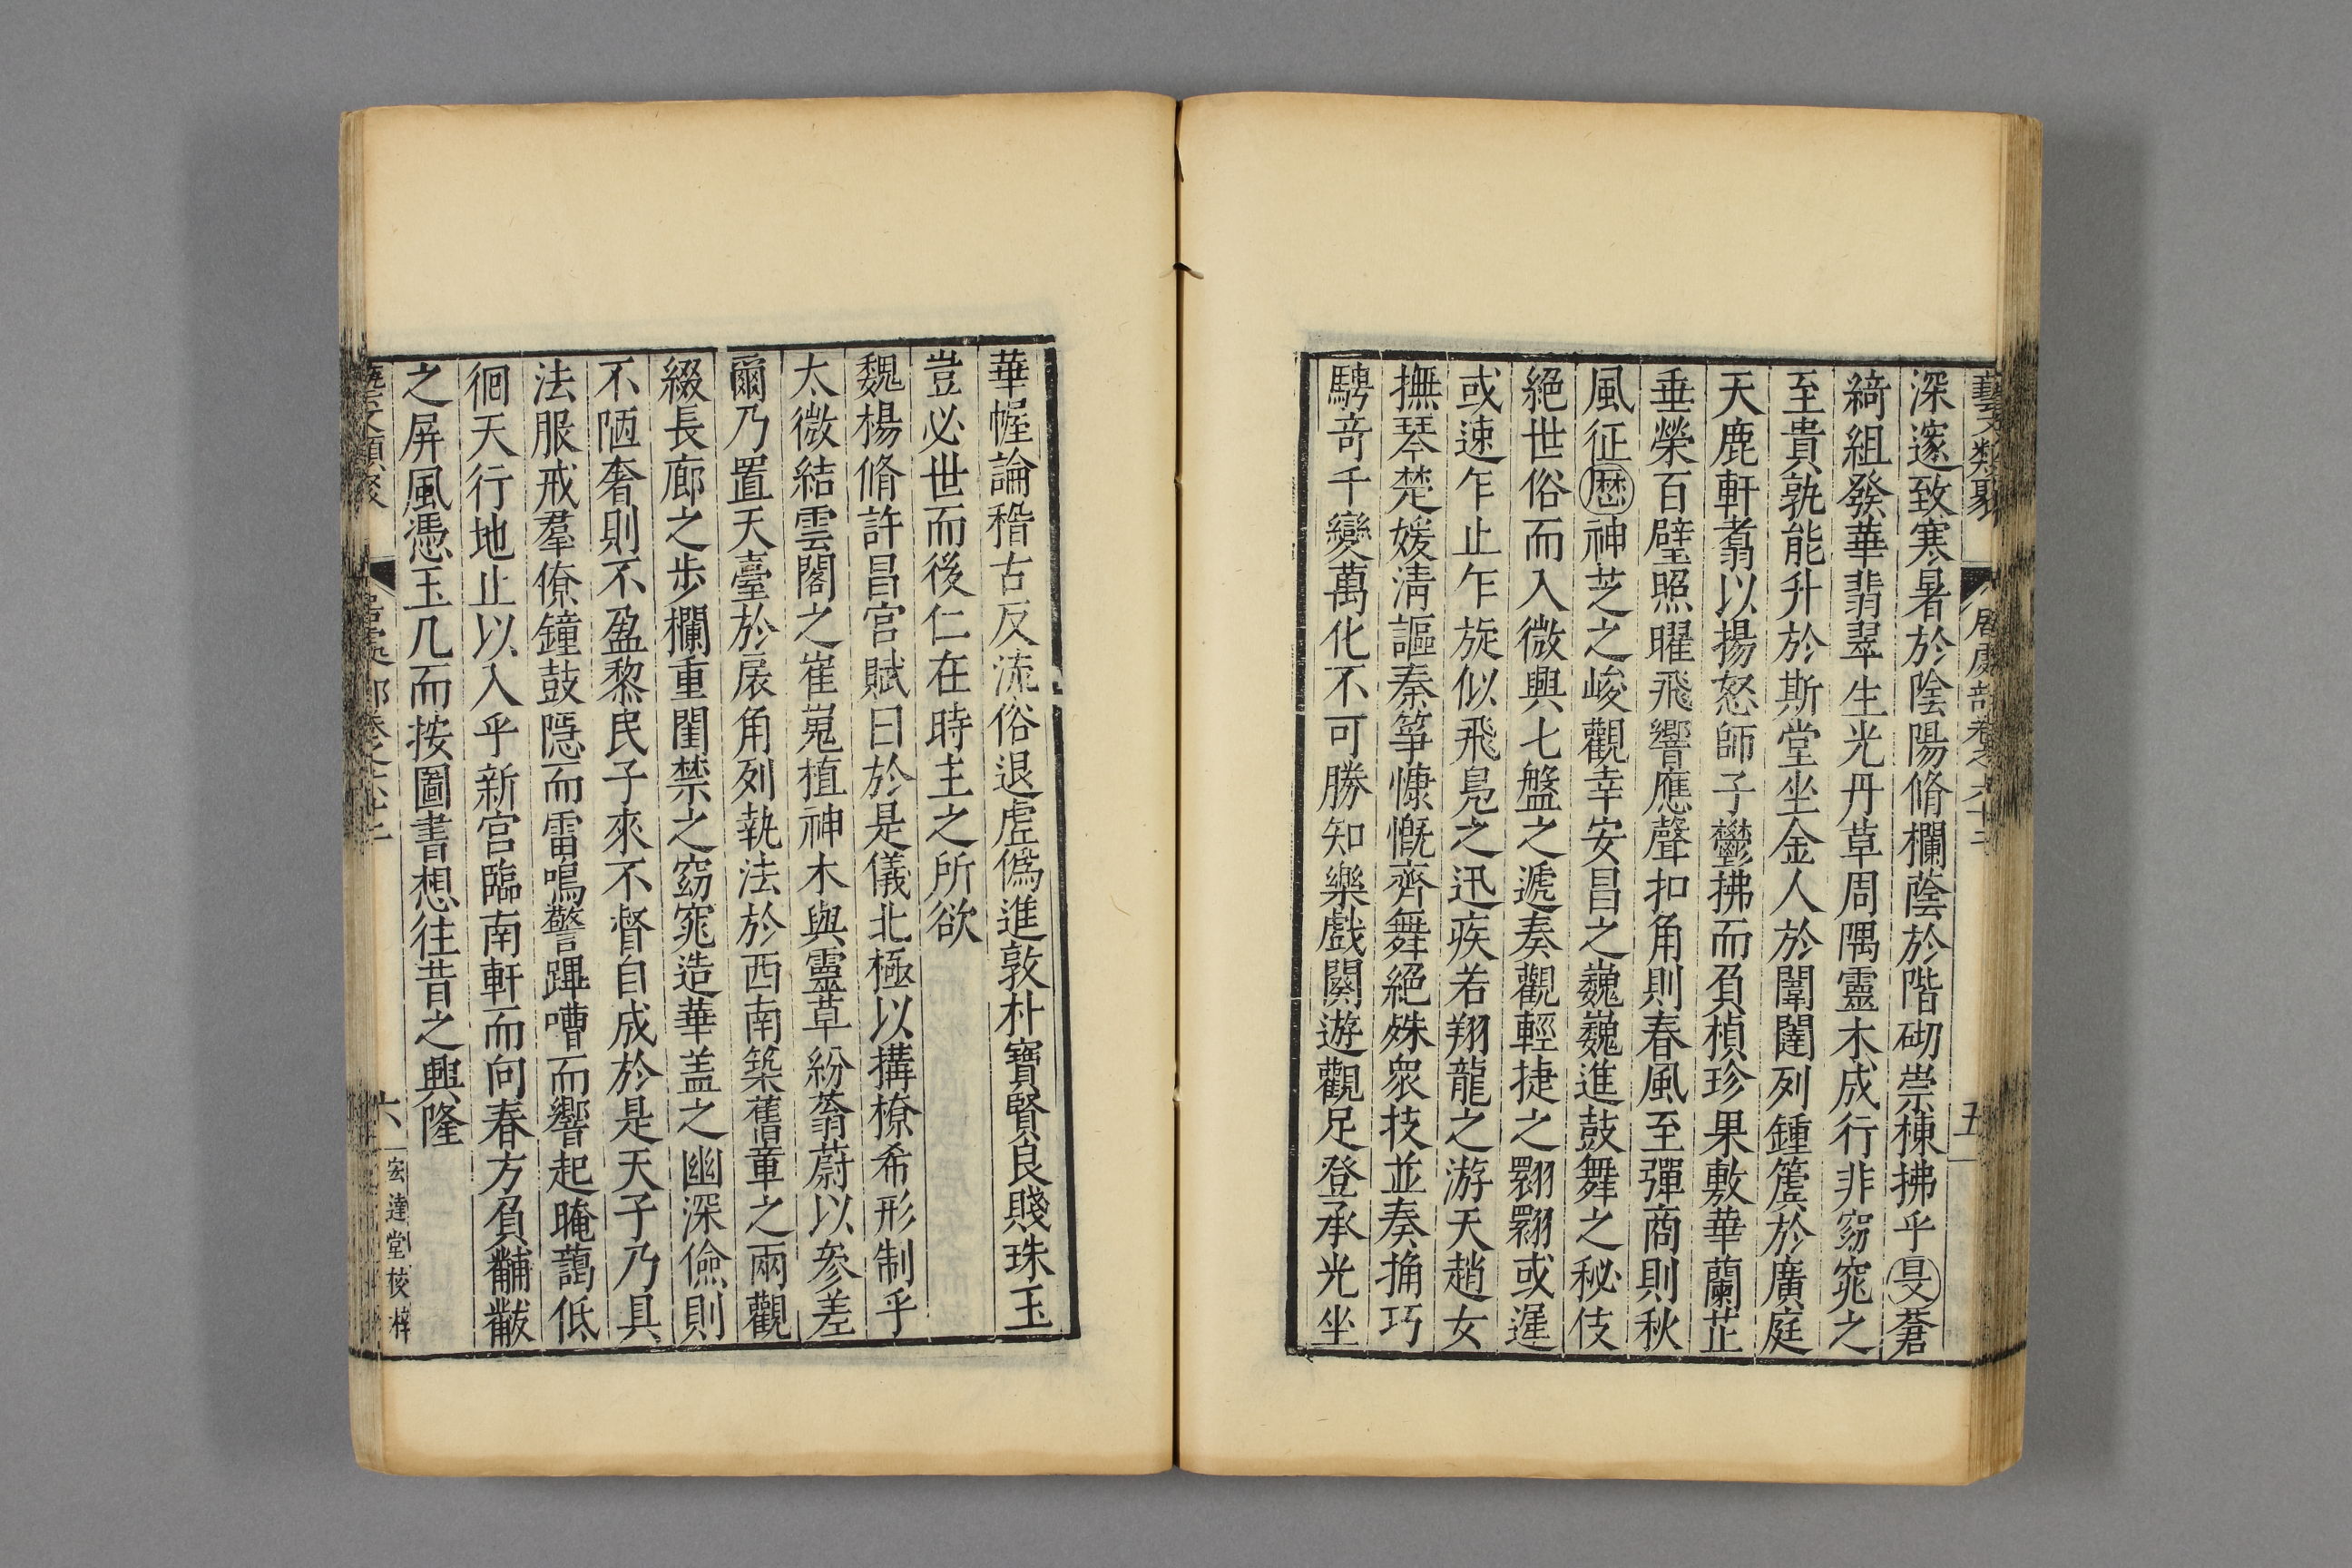 藝文類聚 居處部卷之六十二 五
深邃致寒暑於陰陽脩欄蔭於階砌崇棟拂乎旻蒼
綺組發華翡翠生光丹草周隅靈木成行非窈窕之
至貴孰能升於斯堂坐金人於闈闥列鍾簴於廣庭
天鹿軒翥以揚怒師子鬱拂而負楨珍果敷華蘭芷
垂榮百璧照曜飛響應聲扣角則春風至彈商則秋
風征歷神芝之峻觀幸安昌之巍巍進鼓舞之秘伎
絕世俗而入微興七盤之遞奏觀輕捷之翾翾或遲
或速乍止乍旋似飛鳧之迅疾若翔龍之游天趙女
撫琴楚媛清謳秦筝慷慨齊舞絕殊衆技並奏捔巧
騁奇千變萬化不可勝知樂戲闋遊觀足登承光坐
華幄論稽古反流俗退虛僞進敦朴寶賢良賤珠玉
豈必世而後仁在時主之所欲
魏楊脩許昌宮賦曰於是儀北極以搆橑希形制乎
太微結雲閣之崔嵬植神木與靈草紛蓊蔚以參差
爾乃置天臺於扆角列執法於西南築舊章之兩觀
綴長廊之步欄重閨禁之窈窕造華盖之幽深儉則
不陋奢則不盈黎民子來不督自成於是天子乃具
法服戒羣僚鐘鼓隱而雷鳴警蹕嘈而響起晻藹低
徊天行地止以入乎新宮臨南軒而向春方負黼黻
之屏風憑玉几而按圖書想往昔之興隆
藝文類聚 居處部卷之六十二 六 宏達堂校梓